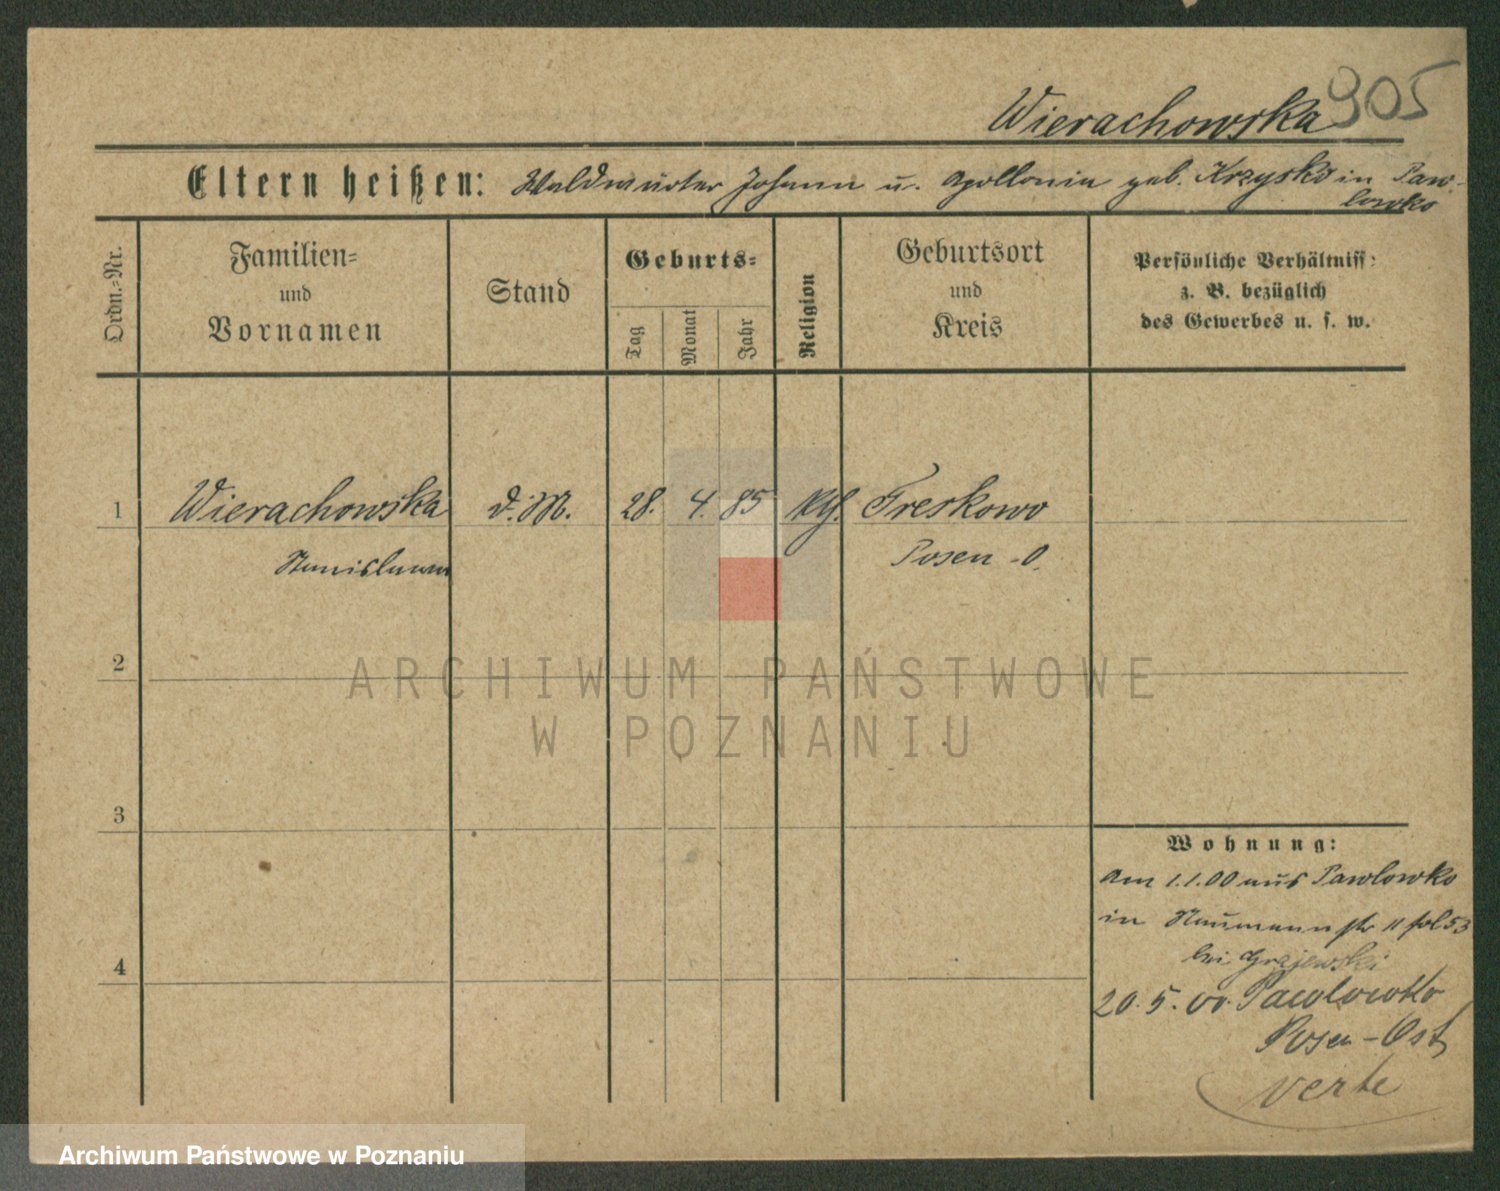 Wierachowska 905
Eltern heißen: Waldwärter Johann u. Apollonia geb. Krzysko in Paw-
lowko
Ordn.-Nr.
Familien-
und
Vornamen
Stand
Geburts-
Tag
Monat
Jahr
Religion
Geburtsort
und
Kreis
Persönliche Verhältniss:
z. B. bezüglich
des Gewerbes u. s. w.
1 Wierachowska d. M. 28. 4. 85 kth. Treskowo
Stanislawa Posen - O.
2
3
4
Wohnung:
am 1.1.00 aus Pawlowko
in Naumannstr 11 fol 53
bei Grajewski
20. 5. 00. Pawlowko
Posen - Ost
verte
ARCHIWUM PAŃSTWOWE
W POZNANIU
Archiwum Państwowe w Poznaniu